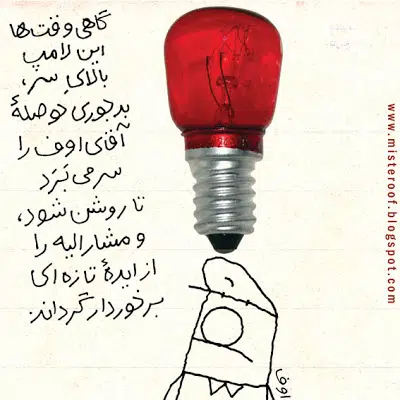 گاهی وقت‌ها
این لامپ
بالایِ سر،
بدجوری حوصلهٔ
آقای اوف را
سر می بَرَد
تا روشن شود،
و مشارالیه را
از ایدهٔ تازه ای
برخوردار گرداند.
www.misteroof.blogspot.com
اوف